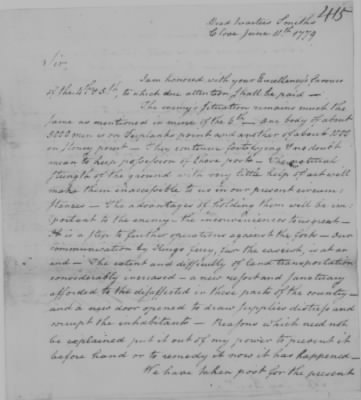 415
Head Quarters Smiths
Clove June 11th 1779
Sir,
I am honored with your Excellency's favors
of the 4th & 5th, to which due attention shall be paid —
The enemy's situation remains much the
same as mentioned in mine of the 6th — One body of about
men is on Verplanks point and another of about 1000
on Stoney point — They continue fortifying & no doubt
mean to keep possession of those posts — The natural
strength of the ground with very little help of art will
make them inaccessible to us in our present circum
stances — The advantages of holding them will be im
portant to the enemy — the inconveniences to us great —
It is a step to further operations against the forts — Our
communication by Kings ferry, far the easiest, is at an
end — The extent and difficulty of land transportation
considerably increased — a new resort and sanctuary
afforded to the disaffected in these parts of the country —
and a new door opened to draw supplies distress and
corrupt the inhabitants — Reasons which need not
be explained put it out of my power to prevent it
before hand or to remedy it now it has happened —
We have taken post for the present